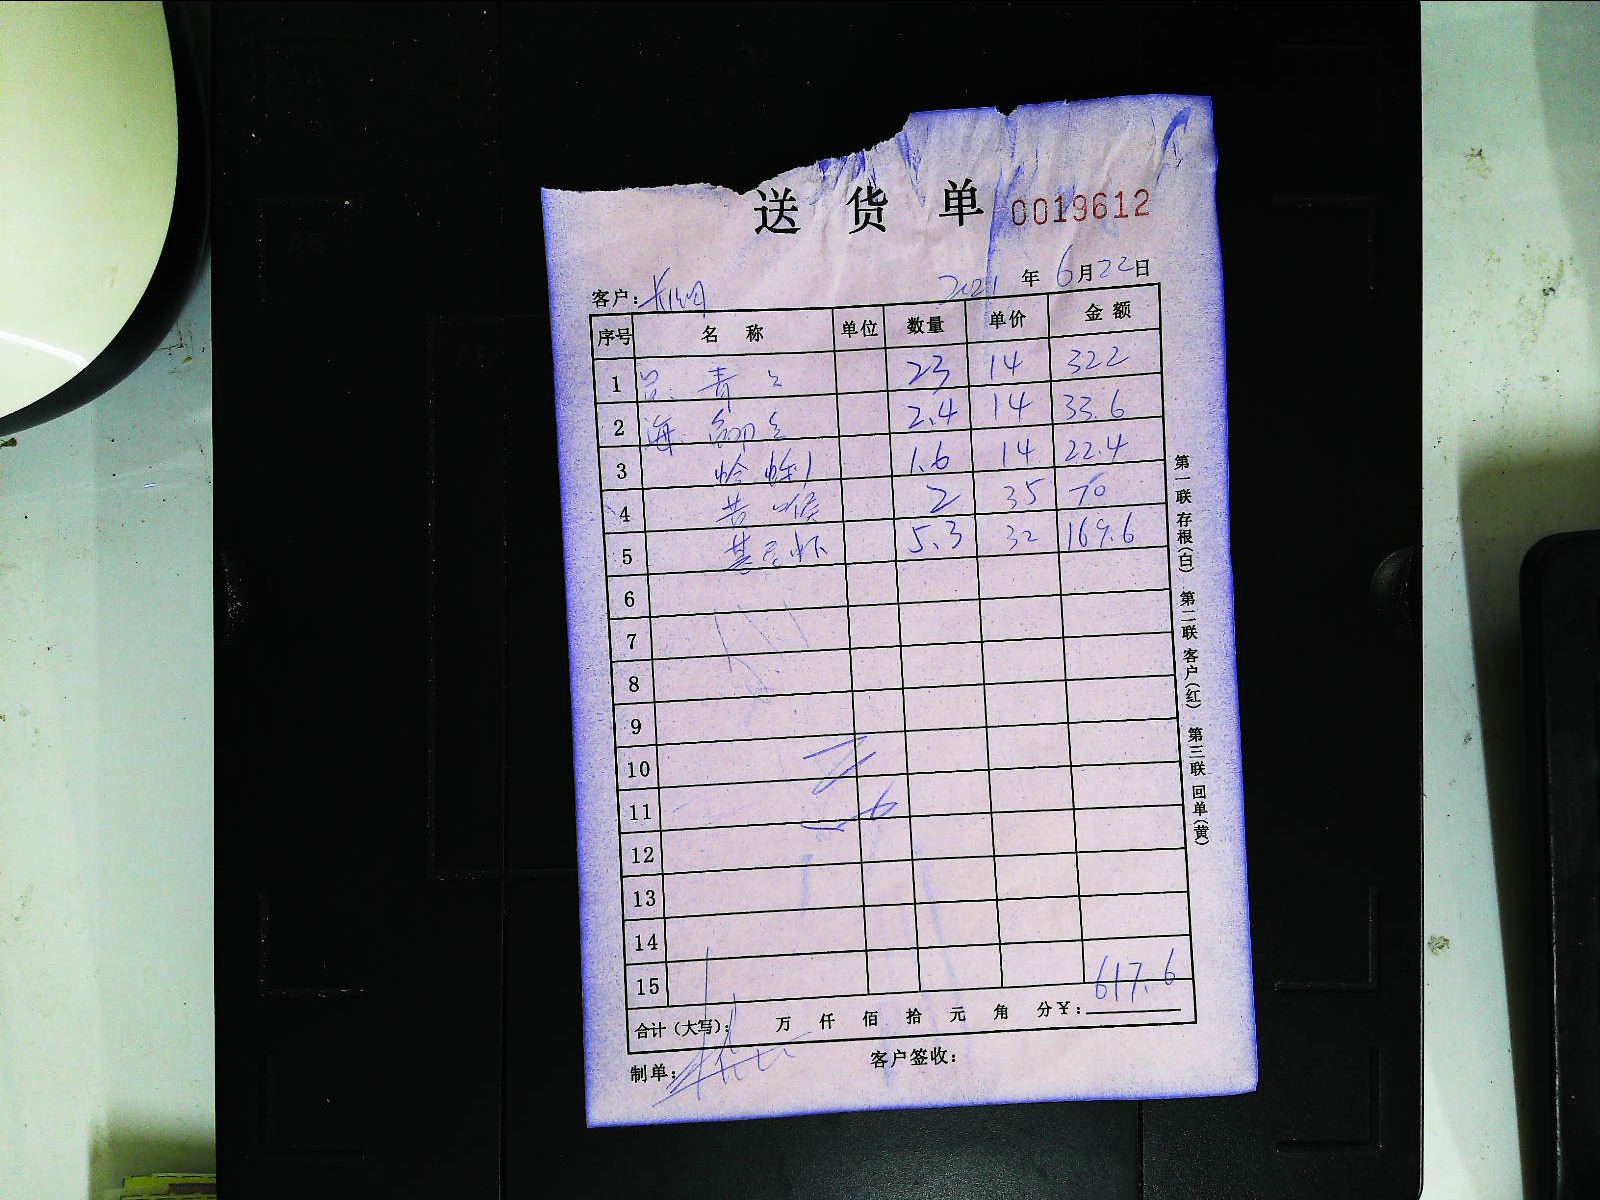 送 货 单 0019612
客户: 2021 年 6月22日
序号 名 称 单位 数量 单价 金 额
1 23 14 322
2 2.4 14 33.6
3 1.6 14 22.4
4 2 35 70
5 5.3 32 169.6
6
7
8
9
10
11
12
13
14
15
617.6
合计(大写): 万 仟 佰 拾 元 角 分¥:
制单: 客户签收:
第一联 存根(白) 第二联 客户(红) 第三联 回单(黄)